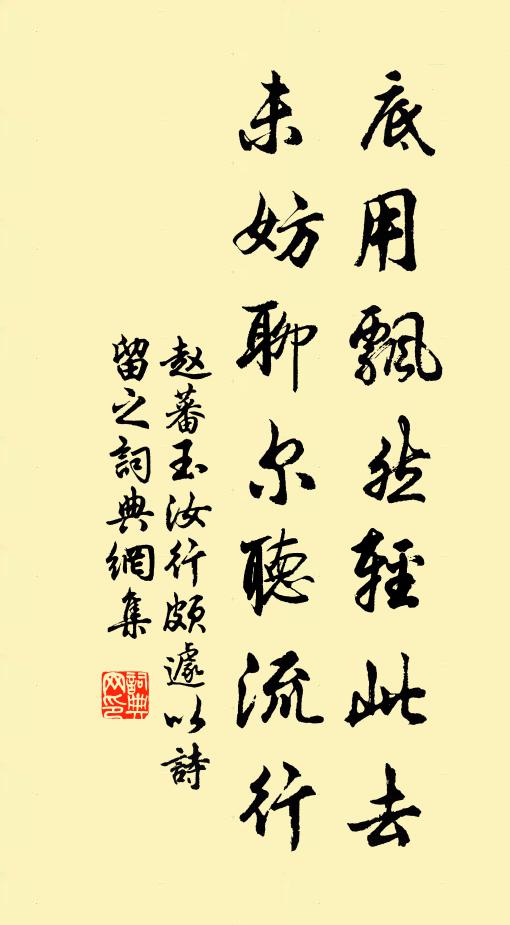 底用飄然輕此去
未妨聊尔聽流行
赵蕃玉汝行頗遽以詩
留之詞典網集
詞典网印